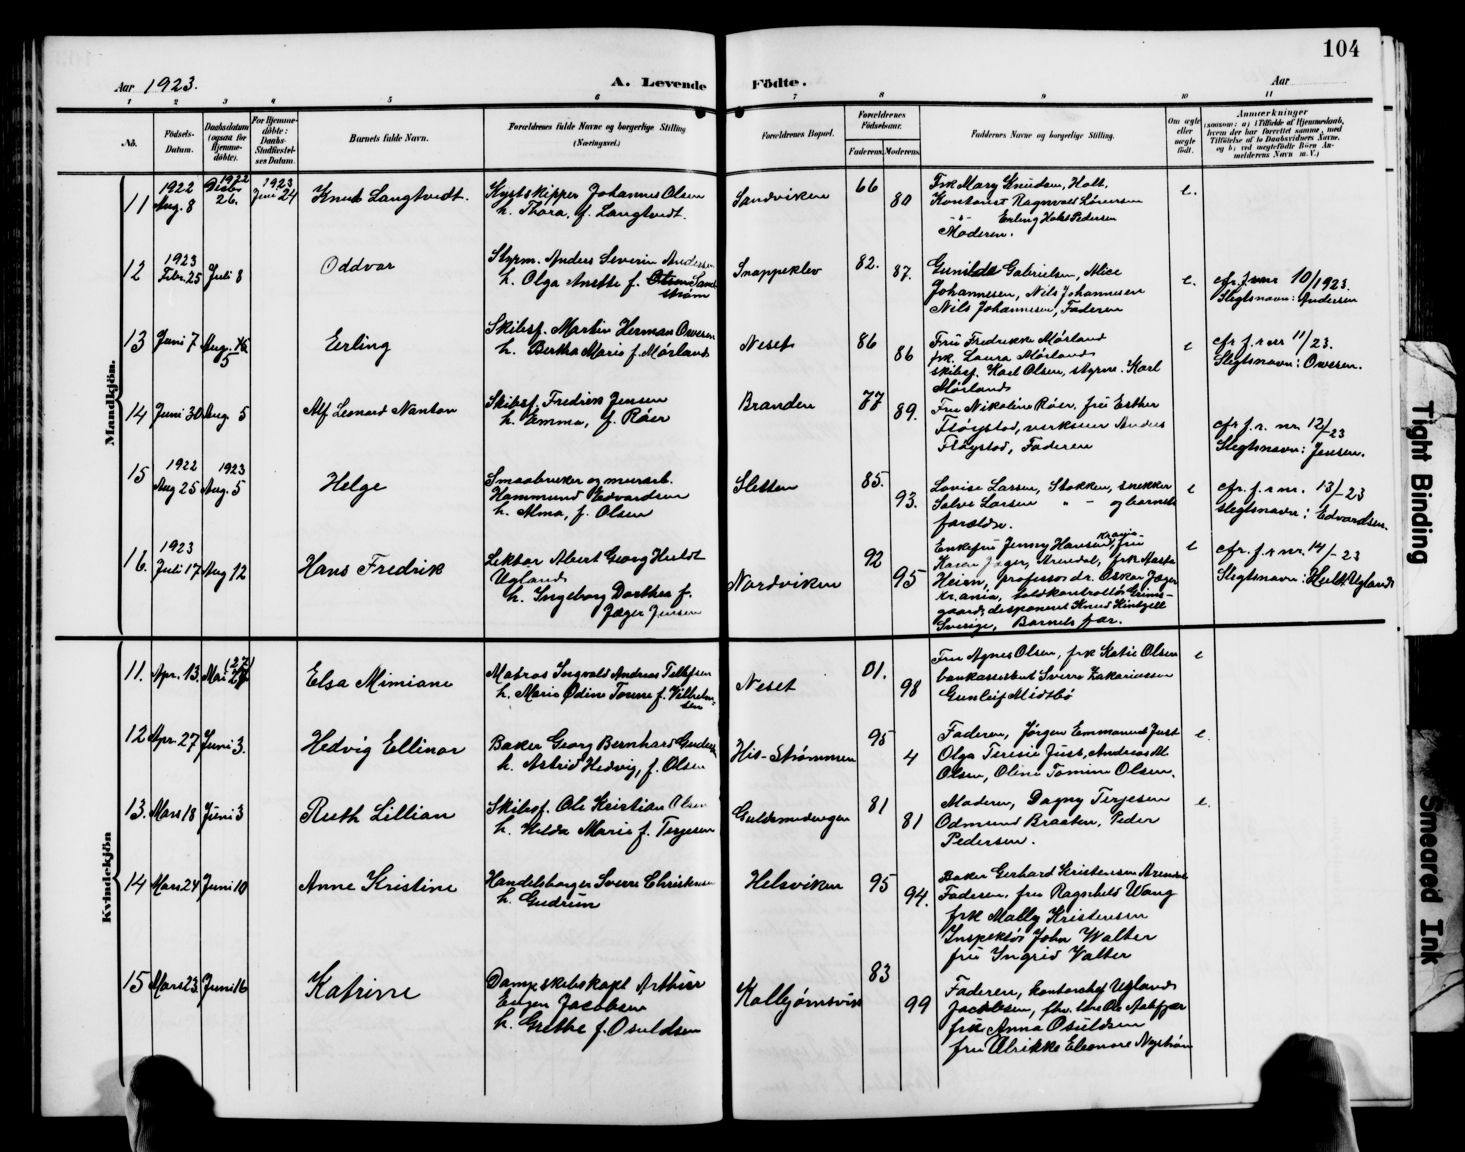 104
Aar 1923.
A. Levende Födte.
Aar
1 2 3 4 5 6 7 8 9 10 11
No.
Födsels-Datum.
Daabsdatum (ogsaa for Hjemme-döbte).
For Hjemme-döbte: Daabs-Stadfæstel-ses Datum.
Barnets fulde Navn.
Forældrenes fulde Navne og borgerlige Stilling
(Næringsvei.)
Forældrenes Bopæl.
Forældrenes Födselsaar.
Faderens. Moderens.
Faddernes Navne og borgerlige Stilling.
Om ægte eller uægte födt.
Anmærkninger
(saasom: a) i Tilfælde af Hjemmedaab, hvem der har forrettet samme, med Tilföielse af to Daabsvidners Navne, og b) ved uægtefödte Börn An-melderens Navn m. V.)
Mandkjön.
11 1922 Aug. 8
1922 Desbr 26.
1923 Juni 24
Knud Langtvedt.
Kystskipper Johannes Olsen
h. Thora, f. Langtvedt.
Sandviken
66 80
Frk Mary Knudsen, Holt.
Kontorist Ragnvald Sörensen
Erling Holst Pedersen
Moderen.
e.
12 1923 Febr. 25 Juli 8
Oddvar
Styrm. Anders Severin Andersen
h. Olga Anette f. Olsen Sand-
ström
Snappeklev
82. 87.
Gunilde Gabrielsen, Alice
Johannesen, Nils Johannesen
Nils Johannesen, Faderen
e.
cfr. f. r nr 10/1923.
Slegtsnavn: Andersen
13 Juni 7 Aug. 5
Erling
Skibsf. Martin Herman Ovesen
h. Bertha Marie f. Mörland
Neset
86 86
Fru Fredrikke Mörland
frk. Laura Mörland
skibsf. Karl Olsen, styrm. Karl
Mörland
e
cfr f. r nr 11/23.
Slegtsnavn: Ovesen.
14 Juni 30 Aug. 5
Alf Leonard Nanton
Skibsf. Fredrik Jensen
h. Emma, f. Röer
Branden
77 89.
Fru Nikoline Röer, fru Esther
Flöystad, verkseier Anders
Flöystad, Faderen
cfr f. r. nr. 12/-23
Slegtsnavn: Jensen.
15 1922 Aug 25
1923 Aug. 5
Helge
Smaabruker og murarb.
Hammund Edvardsen
h. Alma, f. Olsen
Sletten
85. 93.
Lovise Larsen, Stokken, snekker
Salve Larsen " - og barnets
forældre.
e
cfr. f. r nr. 13/-23
slegtsnavn: Edvardsen.
16. 1923 Juli 17 Aug 12
Hans Fredrik
Lektor Albert Georg Huldt
Ugland
h. Ingeborg Dorthea f.
Jæger Jensen
Nordviken
92 95
Enkefru Jenny Hansen, Krania, fru
Karen Jæger, Arendal, frk Aasta
Heiem, professor dr. Oskar Jæger
Krania, toldkontrollör Grims-
gaard, disponent Knud
Sverige, Barnets far.
e
cfr. f. r nr. 14/-23
Slegtsnavn: Huldt Ugland
Kvindekjön
11. Apr. 13. Mai 27
(27)
Elsa Mimiane
Matros Ingvald Andreas Tellefsen
h. Marie Ödine Tomine f. Vilhelm-
sen
Neset
01. 98
Fru Agnes Olsen, frk Katie Olsen
bankassistent Sverre Zakariassen
Gunleif Midtbö
e
12 Apr. 27 Juni 3.
Hedvig Ellinor
Baker Georg Bernhard
h. Astrid Hedvig, f. Olsen
His-Strömmen
95 4
Faderen, Jörgen Emmanuel Just
Olga Teresie Just, Andreas M.
Olsen, Oline Tomine Olsen.
e.
13. Mars 18 Juni 3
Ruth Lillian
Skibsf. Ole Kristian Olsen
h. Hilda Marie f. Terjesen
Guldsmedengen
81 81
Moderen, Dagny Terjesen
Odmund Braaten, Peder
Pedersen.
e.
14 Mars 24 Juni 10
Anne Kristine
Handelsborger Sverre Christensen
h. Gudrun
Helsviken
95 94.
Baker Gerhard Kristensen Arendal
Faderen, fru Ragnhild Wang
frk Mally Kristensen
Inspektör John Walter
fru Ingrid Walter
15 Mars 23. Juni 16
Katrine
Dampskibskapt. Arthur
Eugen Jacobsen
h. Grethe f. Osuldsen
Kolbjörnsvik
83 99
Faderen, kontorchef Ugland
Jacobsen, fhv. Ole Aabjær
frk Anna Osuldsen
fru Ulrikke Eleonore Nyström
Tight Binding
Smeared Ink